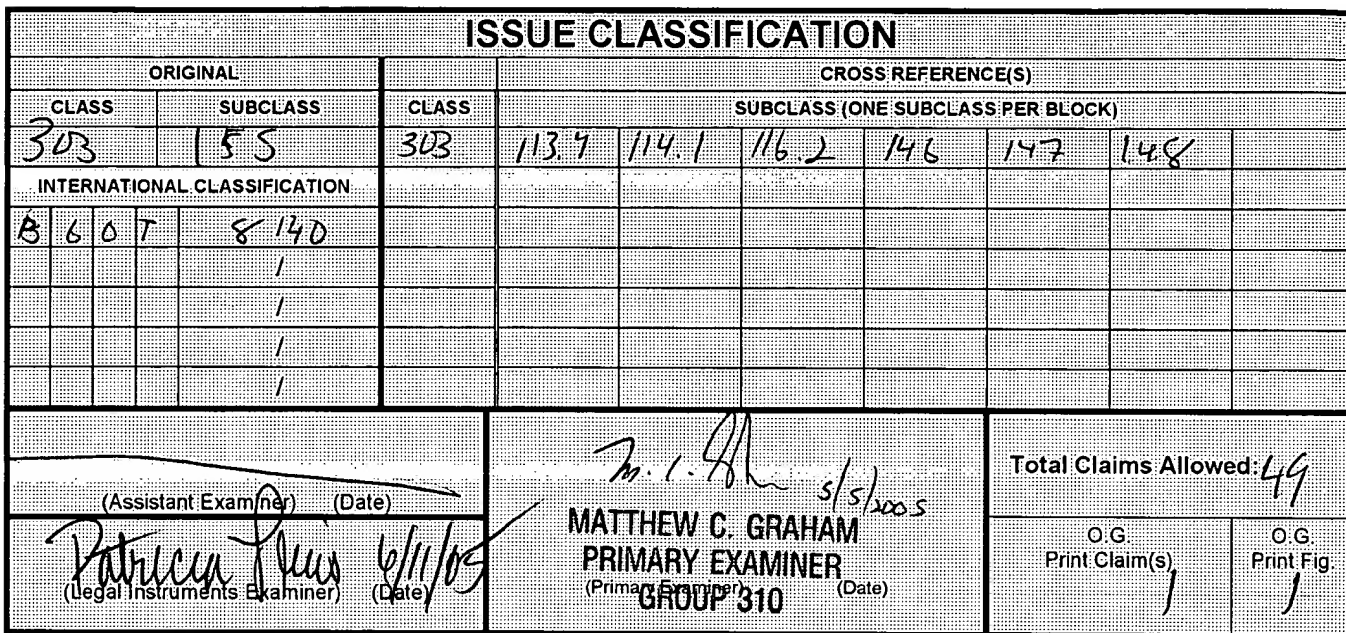 ISSUE CLASSIFICATION
ORIGINAL CROSS REFERENCE(S)
CLASS SUBCLASS CLASS SUBCLASS (ONE SUBCLASS PER BLOCK)
303 155 303 114.1 116.2 146 147 148
INTERNATIONAL CLASSIFICATION
B 6 0 T 8/40
/
/
/
/
(Assistant Examiner) (Date)
Patricia 6/11/05
(Legal Instruments Examiner) (Date)
M. C. 5/5/2005
MATTHEW C. GRAHAM
PRIMARY EXAMINER
(Primary Examiner) (Date)
GROUP 310
Total Claims Allowed: 49
O.G. Print Claim(s) 1
O.G. Print Fig. 1